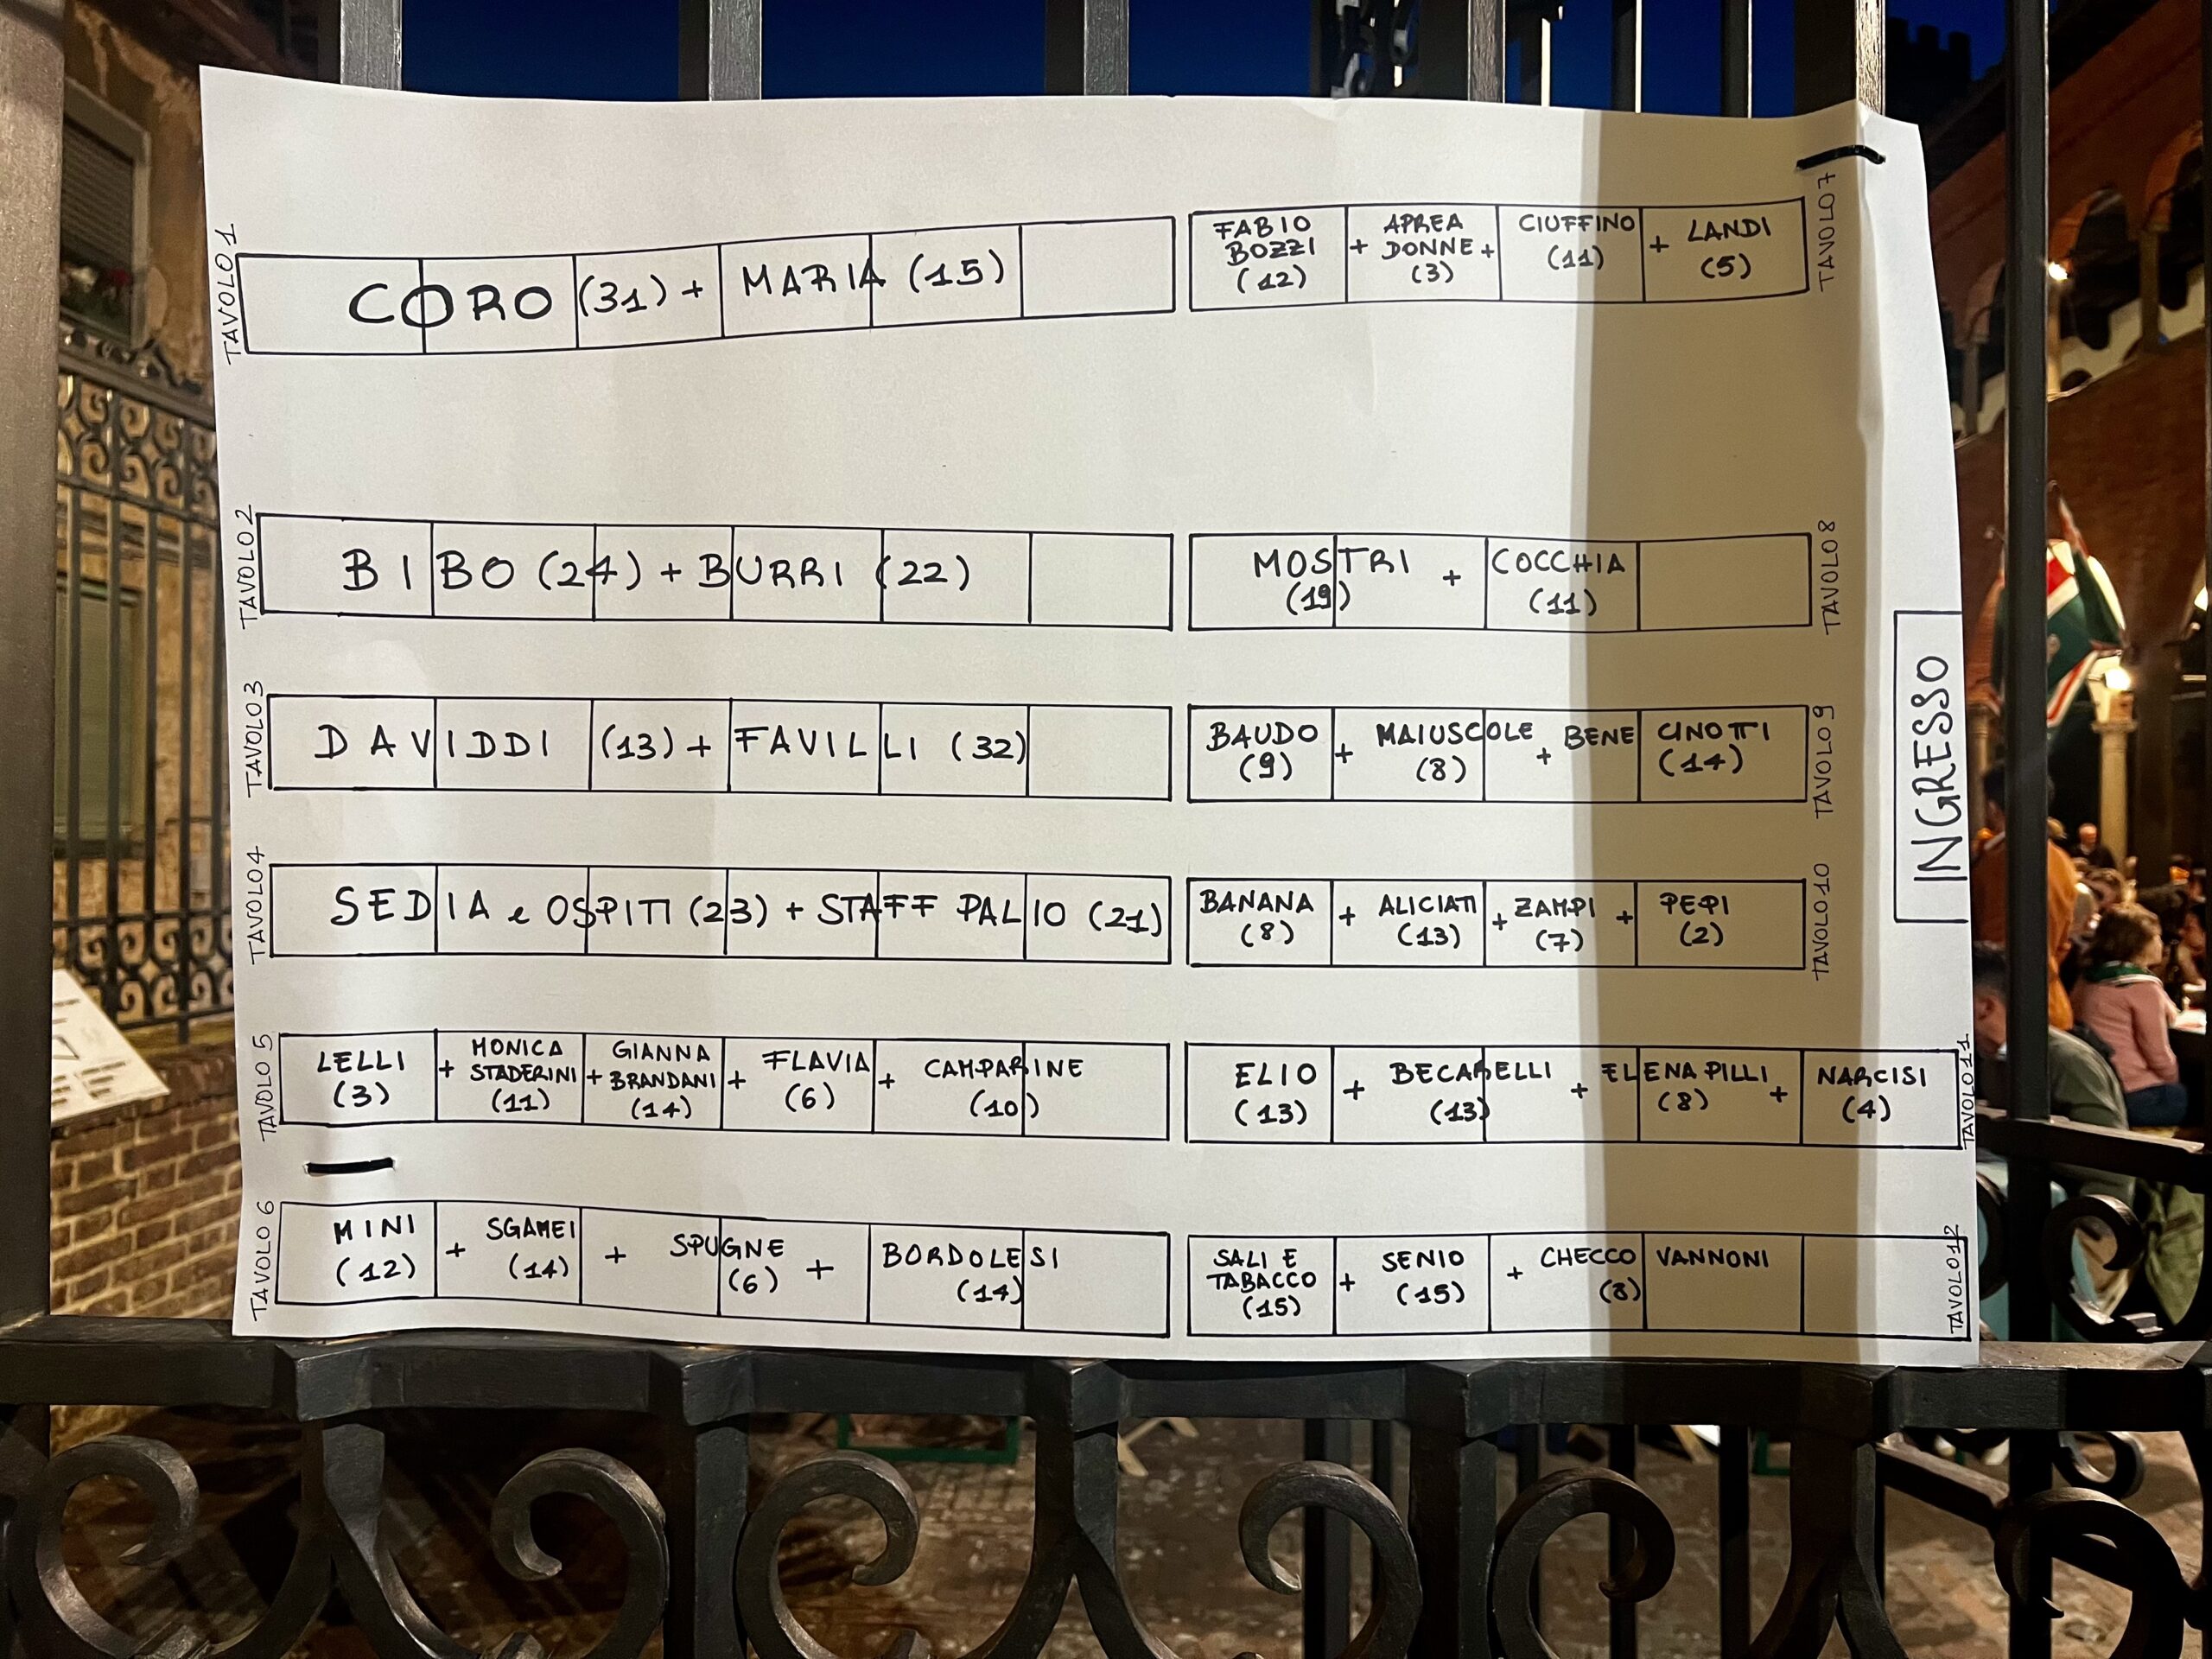 TAVOLO 1
CORO (31) + MARIA (15)
TAVOLO 2
BIBO (24) + BURRI (22)
TAVOLO 3
DAVIDDI (13) + FAVILLI (32)
TAVOLO 4
SEDIA e OSPITI (23) + STAFF PALIO (21)
TAVOLO 5
LELLI (3) + MONICA STADERINI (11) + GIANNA BRANDANI (14) + FLAVIA (6) + CAMPARINE (10)
TAVOLO 6
MINI (12) + SGAMEI (14) + SPUGNE (6) + BORDOLESI (14)
TAVOLO 7
FABIO BOZZI (12) + APREA DONNE (3) + CIUFFINO (11) + LANDI (5)
TAVOLO 8
MOSTRI (19) + COCCHIA (11)
TAVOLO 9
BAUDO (9) + MAIUSCOLE (8) + BENE CINOTTI (14)
TAVOLO 10
BANANA (8) + ALICIATI (13) + ZAMPI (7) + PEPI (2)
TAVOLO 11
ELIO (13) + BECARELLI (13) + ELENA PILLI (8) + NARCISI (4)
TAVOLO 12
SALI E TABACCO (15) + SENIO (15) + CHECCO VANNONI (8)
INGRESSO